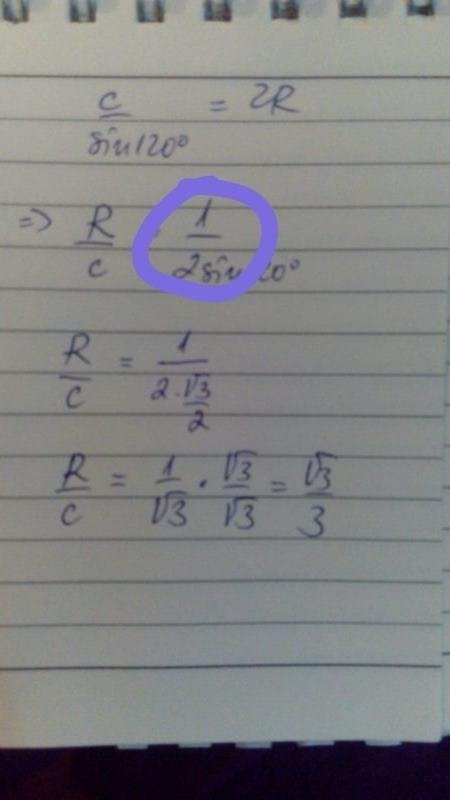 c/sin120° = 2R
=> R/c = 1/2sin120°
R/c = 1/(2·√3/2)
R/c = 1/√3 · √3/√3 = √3/3